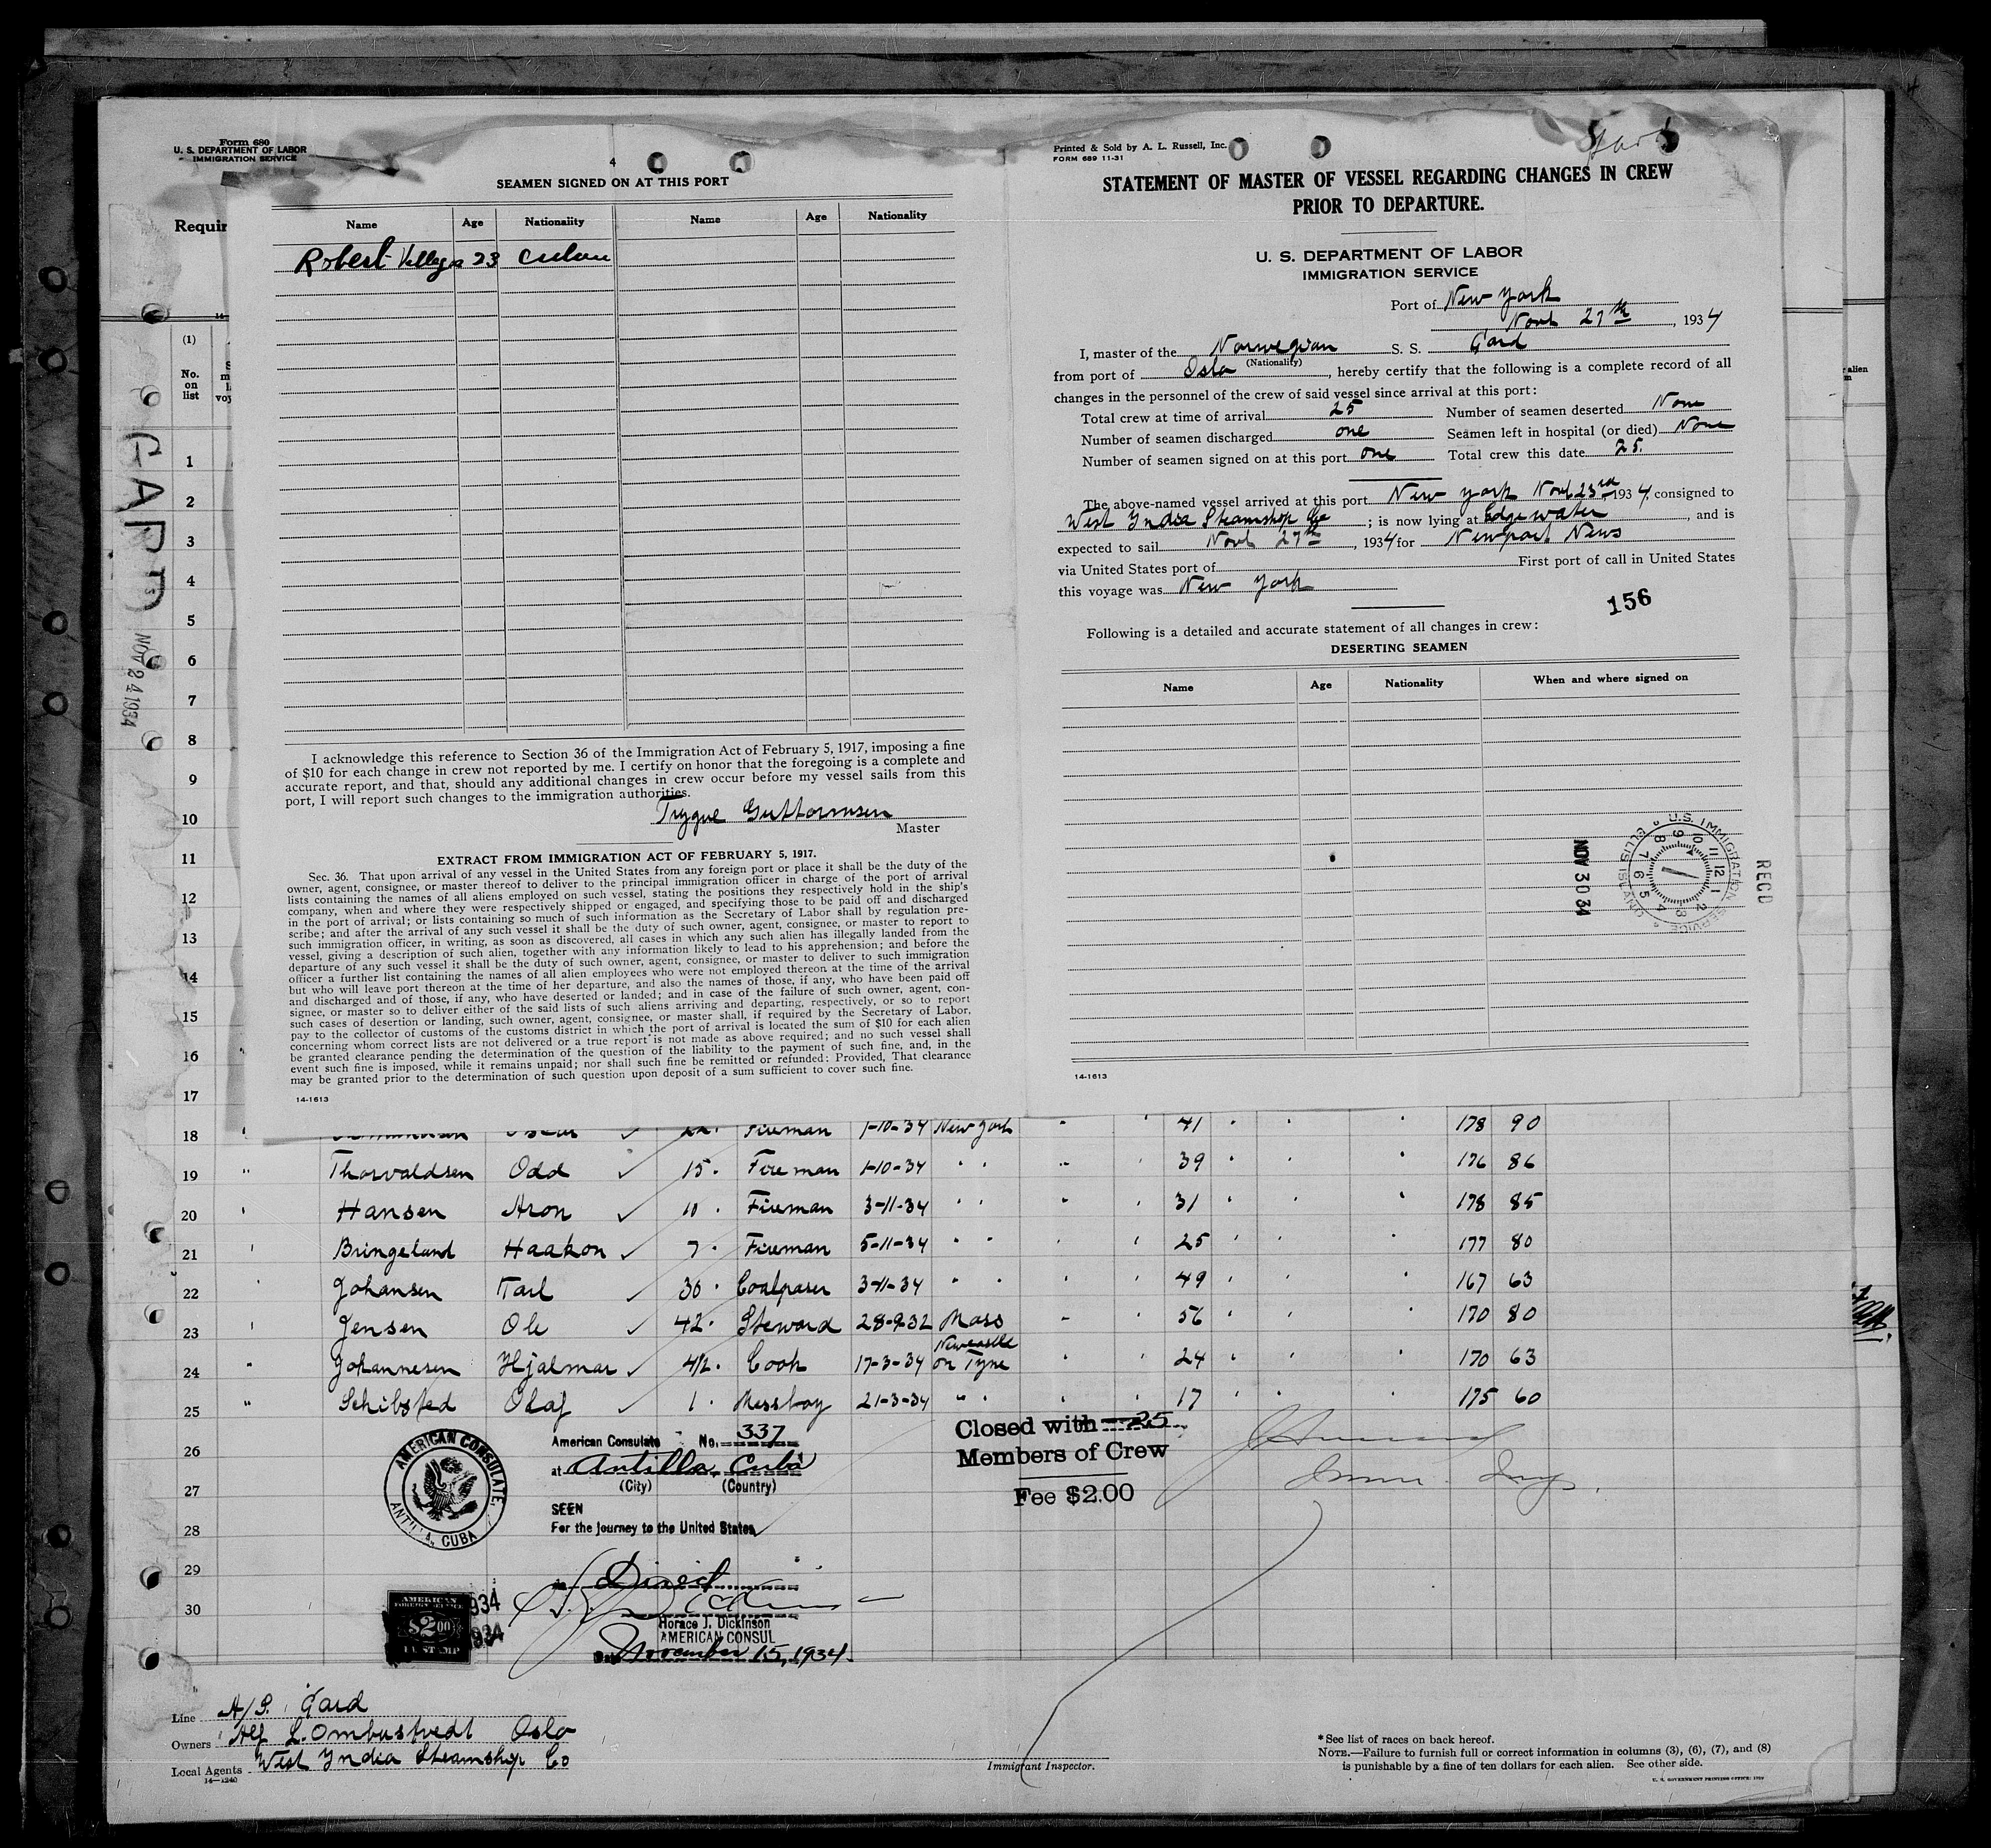 Form 680
U. S. DEPARTMENT OF LABOR
IMMIGRATION SERVICE
Requir
(1)
No.
on
list
GARD
NOV 24 1934
4
SEAMEN SIGNED ON AT THIS PORT
Name Age Nationality Name Age Nationality
Robert 23 Cuban
I acknowledge this reference to Section 36 of the Immigration Act of February 5, 1917, imposing a fine
of $10 for each change in crew not reported by me. I certify on honor that the foregoing is a complete and
accurate report, and that, should any additional changes in crew occur before my vessel sails from this
port, I will report such changes to the immigration authorities.
Trygve Guttormsen
Master
EXTRACT FROM IMMIGRATION ACT OF FEBRUARY 5, 1917.
Sec. 36. That upon arrival of any vessel in the United States from any foreign port or place it shall be the duty of the
owner, agent, consignee, or master thereof to deliver to the principal immigration officer in charge of the port of arrival
lists containing the names of all aliens employed on such vessel, stating the positions they respectively hold in the ship's
company, when and where they were respectively shipped or engaged, and specifying those to be paid off and discharged
in the port of arrival; or lists containing so much of such information as the Secretary of Labor shall by regulation pre-
scribe; and after the arrival of any such vessel it shall be the duty of such owner, agent, consignee, or master to report to
such immigration officer, in writing, as soon as discovered, all cases in which any such alien has illegally landed from the
vessel, giving a description of such alien, together with any information likely to lead to his apprehension; and before the
departure of any such vessel it shall be the duty of such owner, agent, consignee, or master to deliver to such immigration
officer a further list containing the names of all alien employees who were not employed thereon at the time of the arrival
but who will leave port thereon at the time of her departure, and also the names of those, if any, who have been paid off
and discharged and of those, if any, who have deserted or landed; and in case of the failure of such owner, agent, con-
signee, or master so to deliver either of the said lists of such aliens arriving and departing, respectively, or so to report
such cases of desertion or landing, such owner, agent, consignee, or master shall, if required by the Secretary of Labor,
pay to the collector of customs of the customs district in which the port of arrival is located the sum of $10 for each alien
concerning whom correct lists are not delivered or a true report is not made as above required; and no such vessel shall
be granted clearance pending the determination of the question of the liability to the payment of such fine, and, in the
event such fine is imposed, while it remains unpaid; nor shall such fine be remitted or refunded: Provided, That clearance
may be granted prior to the determination of such question upon deposit of a sum sufficient to cover such fine.
14-1613
Printed & Sold by A. L. Russell, Inc.
FORM 689 11-31
STATEMENT OF MASTER OF VESSEL REGARDING CHANGES IN CREW
PRIOR TO DEPARTURE.
U. S. DEPARTMENT OF LABOR
IMMIGRATION SERVICE
Port of New York
Novb 27th, 1934
I, master of the Norwegian S. S. Gard
(Nationality)
from port of Oslo, hereby certify that the following is a complete record of all
changes in the personnel of the crew of said vessel since arrival at this port:
Total crew at time of arrival 25 Number of seamen deserted None
Number of seamen discharged one Seamen left in hospital (or died) None
Number of seamen signed on at this port one Total crew this date 25.
The above-named vessel arrived at this port New York Novb 23rd, 1934, consigned to
West India Steamship Co; is now lying at Edgewater, and is
expected to sail Novb 27th, 1934 for Newport News
via United States port of First port of call in United States
this voyage was New York
156
Following is a detailed and accurate statement of all changes in crew:
DESERTING SEAMEN
Name Age Nationality When and where signed on
RECD
U.S. IMMIGRATION SERVICE ELLIS ISLAND
NOV 30 34
14-1613
1
2
3
4
5
6
7
8
9
10
11
12
13
14
15
16
17
18 Fireman 1-10-34 New York 41 178 90
19 " Thorvaldsen Odd 15 Fireman 1-10-34 " " 39 176 86
20 Hansen Aron 10 Fireman 3-11-34 " " 31 178 85
21 Bringeland Haakon 7 Fireman 5-11-34 " " 25 177 80
22 Johansen Karl 30 Coalpaser 3-11-34 " " 49 167 63
23 Jensen Ole 42 Steward 28-9-32 Mass 56 170 80
24 " Johannesen Hjalmar 4½ Cook 17-3-34 Newcastle on Tyne 24 170 63
25 " Schibsted Olaf 1 Messboy 21-3-34 " " 17 175 60
26
27
28
29
30
AMERICAN CONSULATE, ANTILLA, CUBA
American Consulate No. 337
at Antilla, Cuba
(City) (Country)
SEEN
For the journey to the United States
Direct
Horace J. Dickinson
AMERICAN CONSUL
Date November 15, 1934.
AMERICAN
FOREIGN SERVICE
$2.00
FEE STAMP
1934
1934
Closed with 25
Members of Crew
Fee $2.00
Line A/S. Gard
Owners Alf L. Ombustvedt Oslo
Local Agents West India Steamship Co
14-1240
Immigrant Inspector.
*See list of races on back hereof.
NOTE.—Failure to furnish full or correct information in columns (3), (6), (7), and (8)
is punishable by a fine of ten dollars for each alien. See other side.
U. S. GOVERNMENT PRINTING OFFICE